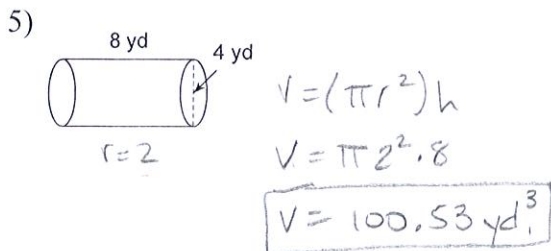 5)
8 yd
4 yd
r=2
V=(πr²)h
V=π2²·8
V= 100.53 yd.³